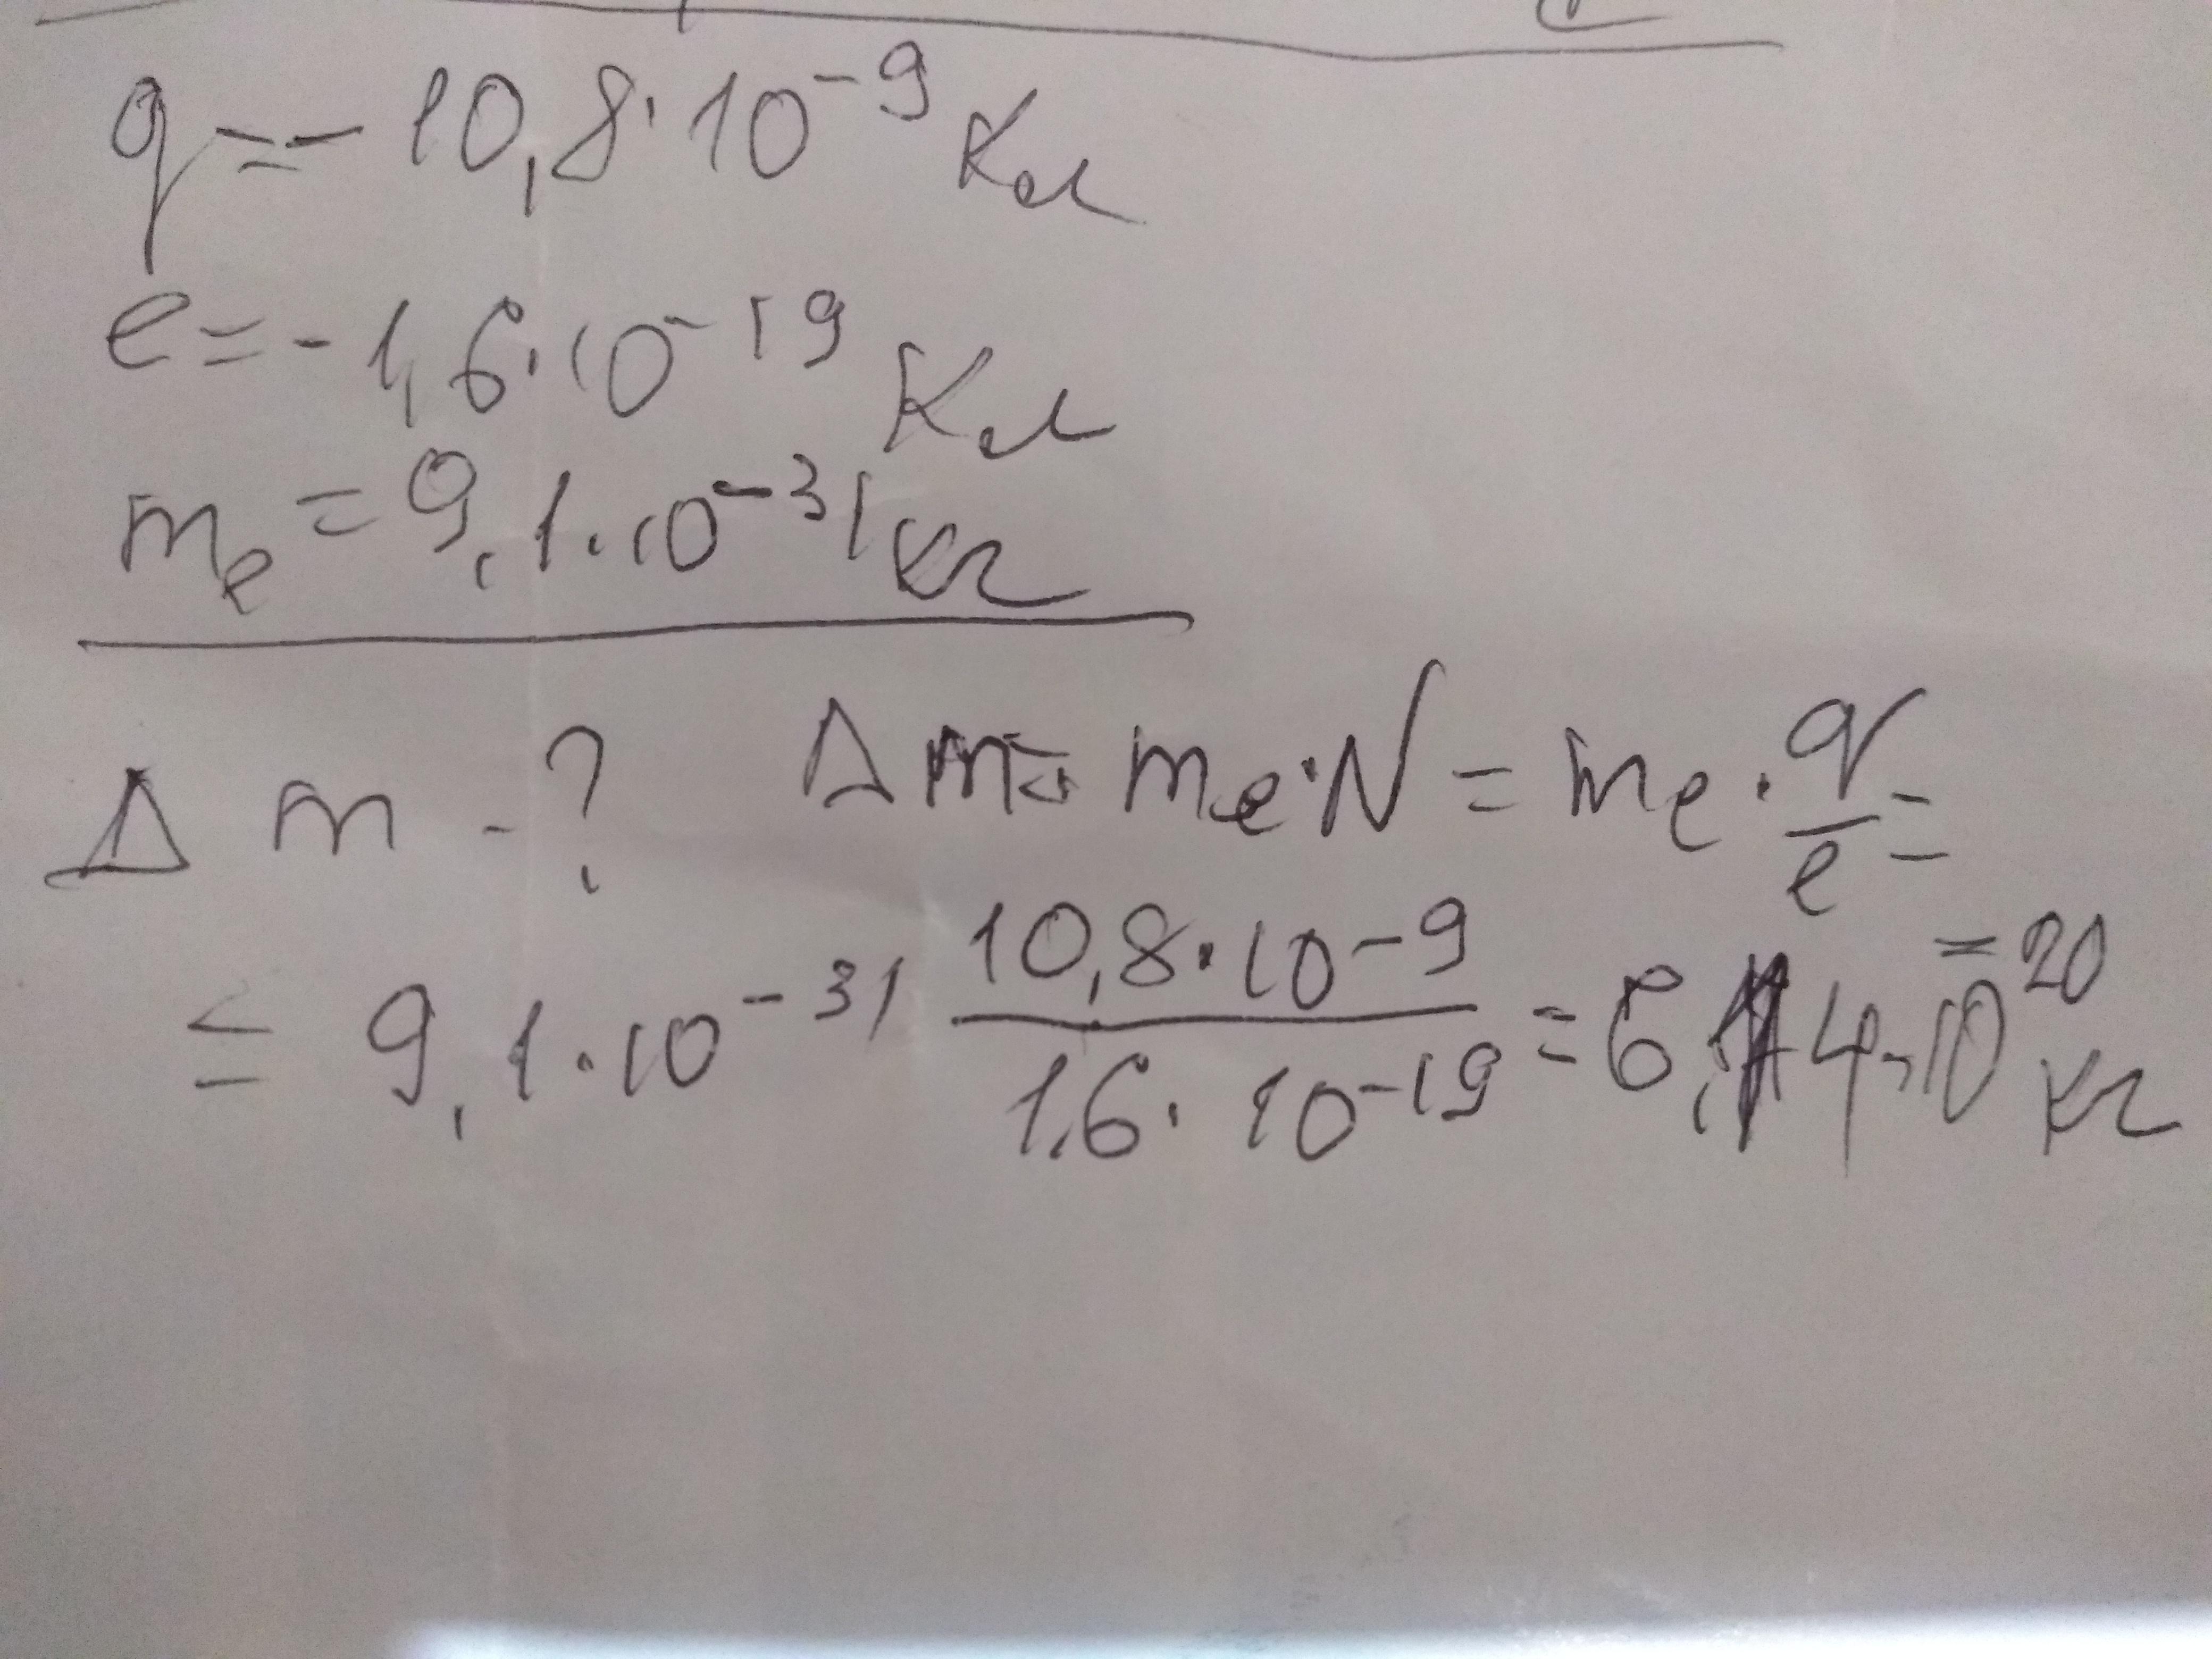 q = - 10,8 · 10⁻⁹ Кл
e = - 1,6 · 10⁻¹⁹ Кл
mₑ = 9,1 · 10⁻³¹ кг
Δ m - ? Δ m = mₑ · N = mₑ · q/e =
= 9,1 · 10⁻³¹ (10,8 · 10⁻⁹)/(1,6 · 10⁻¹⁹) = 6,14 · 10⁻²⁰ кг